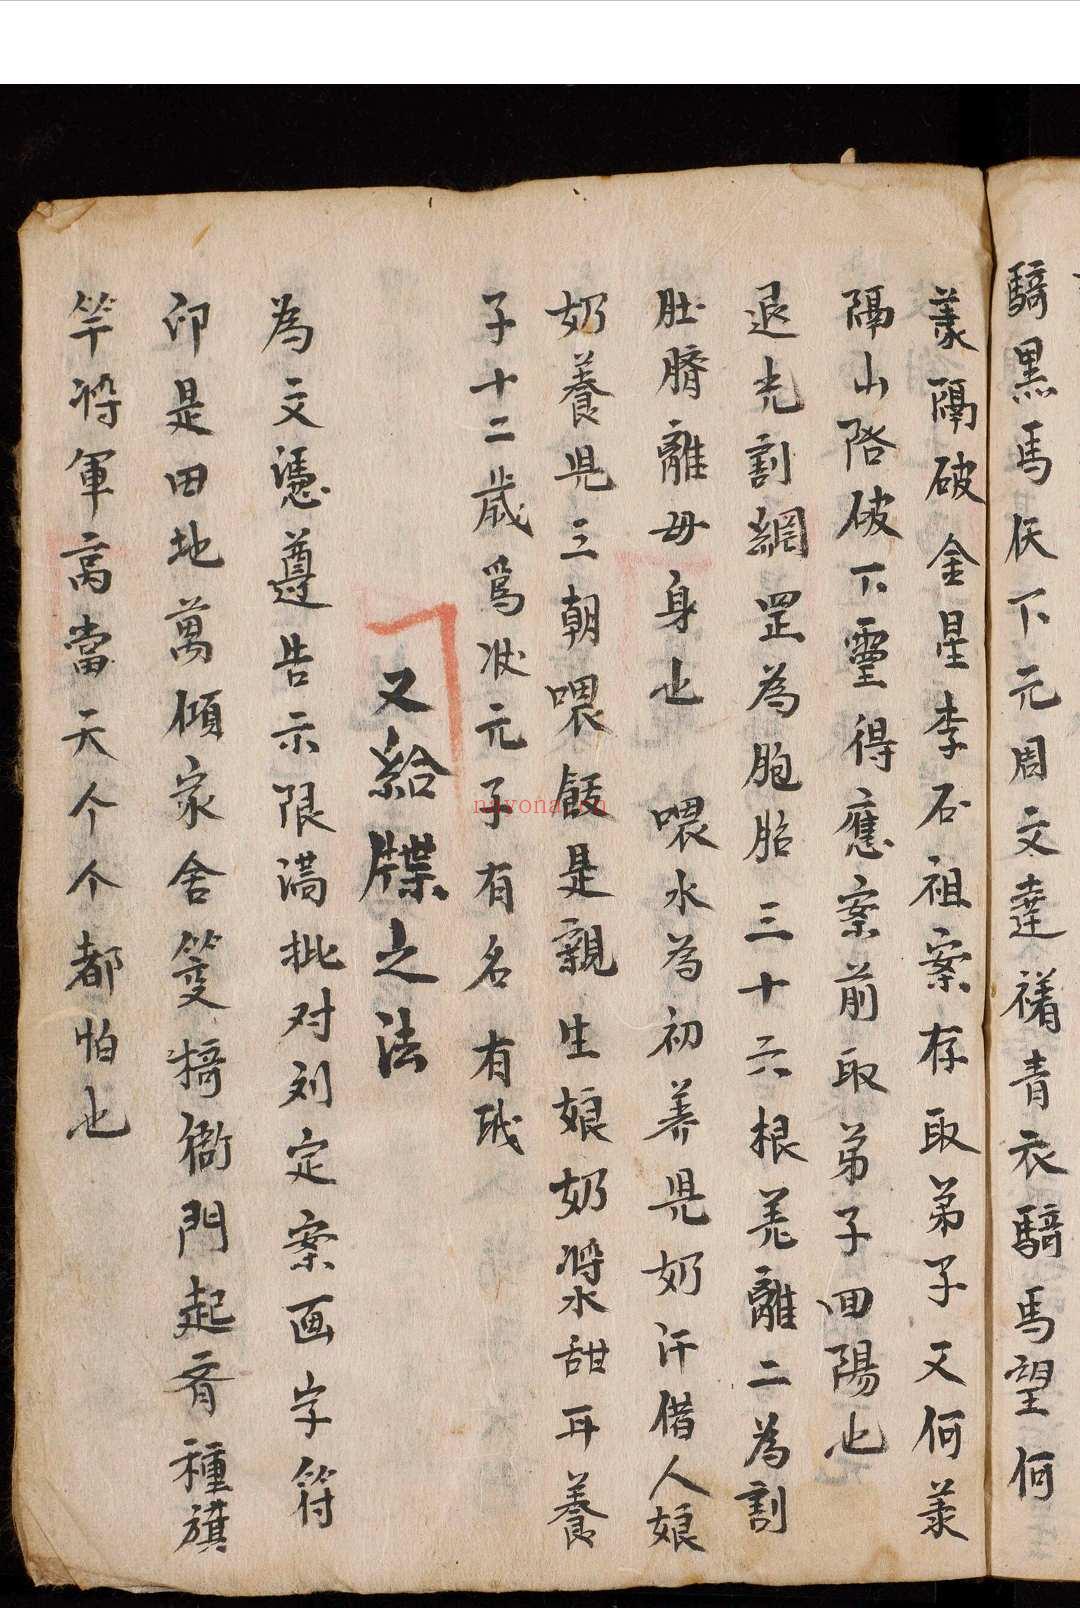 騎黑馬伏下元周文達褚青衣騎馬望何
羕隔破金星李石祖案存取弟子又何羕
隔山啓破下靈得應案前取弟子回陽也
退光割網罡為胞胎三十六根羌離二為割
肚臍離母身也 喂水為初养児奶汗借人娘
奶養児三朝喂飯是親生娘奶漿甜耳養
子十二歲爲状元子有名有聀
又給牒之法
為文憑遵告示限满批对刘定案画字符
印是田地萬傾家舍笅橋衙門起斉種旗
竿将軍高當天个个都怕也
nayona.cn